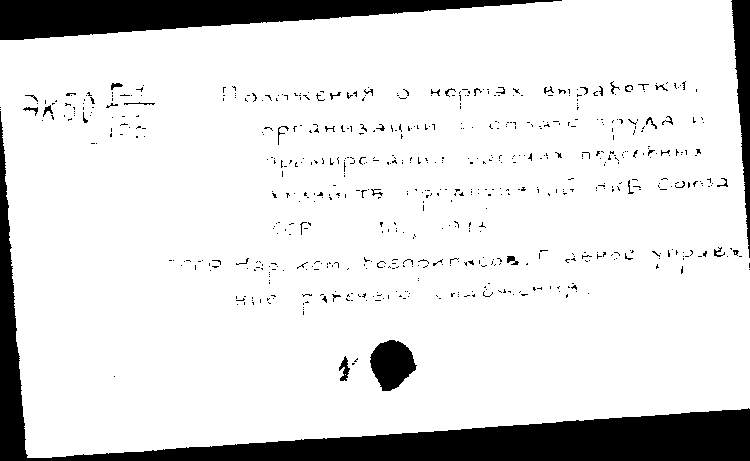 ЭК50 Г-1
Положения о нормах выработки,
организации и оплате труда и
премировании рабочих подсобных
хозяйств предприятий НКБ Союза
ССР
СССР Нар. ком. боеприпасов. Главное управле
ние рабочего снабжения.